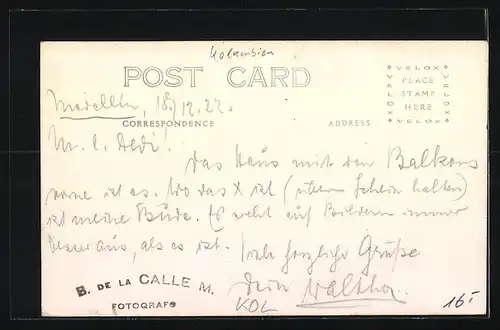 Kolumbien
POST CARD
VELOX
PLACE
STAMP
HERE
VELOX
Medellin, 18/12.22.
CORRESPONDENCE ADDRESS
M. l. Dedi!
Das Haus mit den Balkons
vorne ist es. Wo das X ist (übern Schein halten)
ist meine Bude. Es sieht auf Bildern immer
besser aus, als es ist. Viele herzliche Grüße
B. DE LA CALLE M.
FOTOGRAFO
Dein Walther.
KOL
16,-